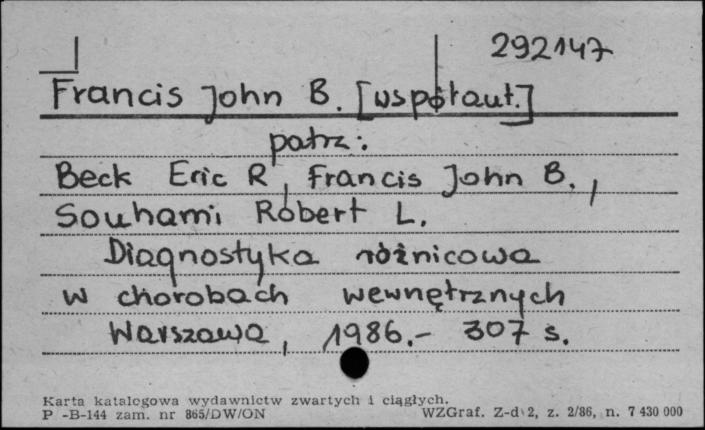 292147
Francis John B. [współaut.]
patrz:
Beck Eric R, Francis John B.,
Souhami Robert L.
Diagnostyka różnicowa
w chorobach wewnętrznych
Warszawa, 1986.- 307 s.
Karta katalogowa wydawnictw zwartych i ciągłych.
P -B-144 zam. nr 865/DW/ON WZGraf. Z-d 2, z. 2/86, n. 7 430 000